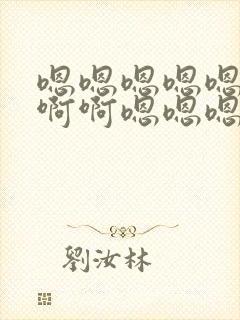 嗯嗯嗯嗯嗯
啊啊嗯嗯嗯
劉汝林